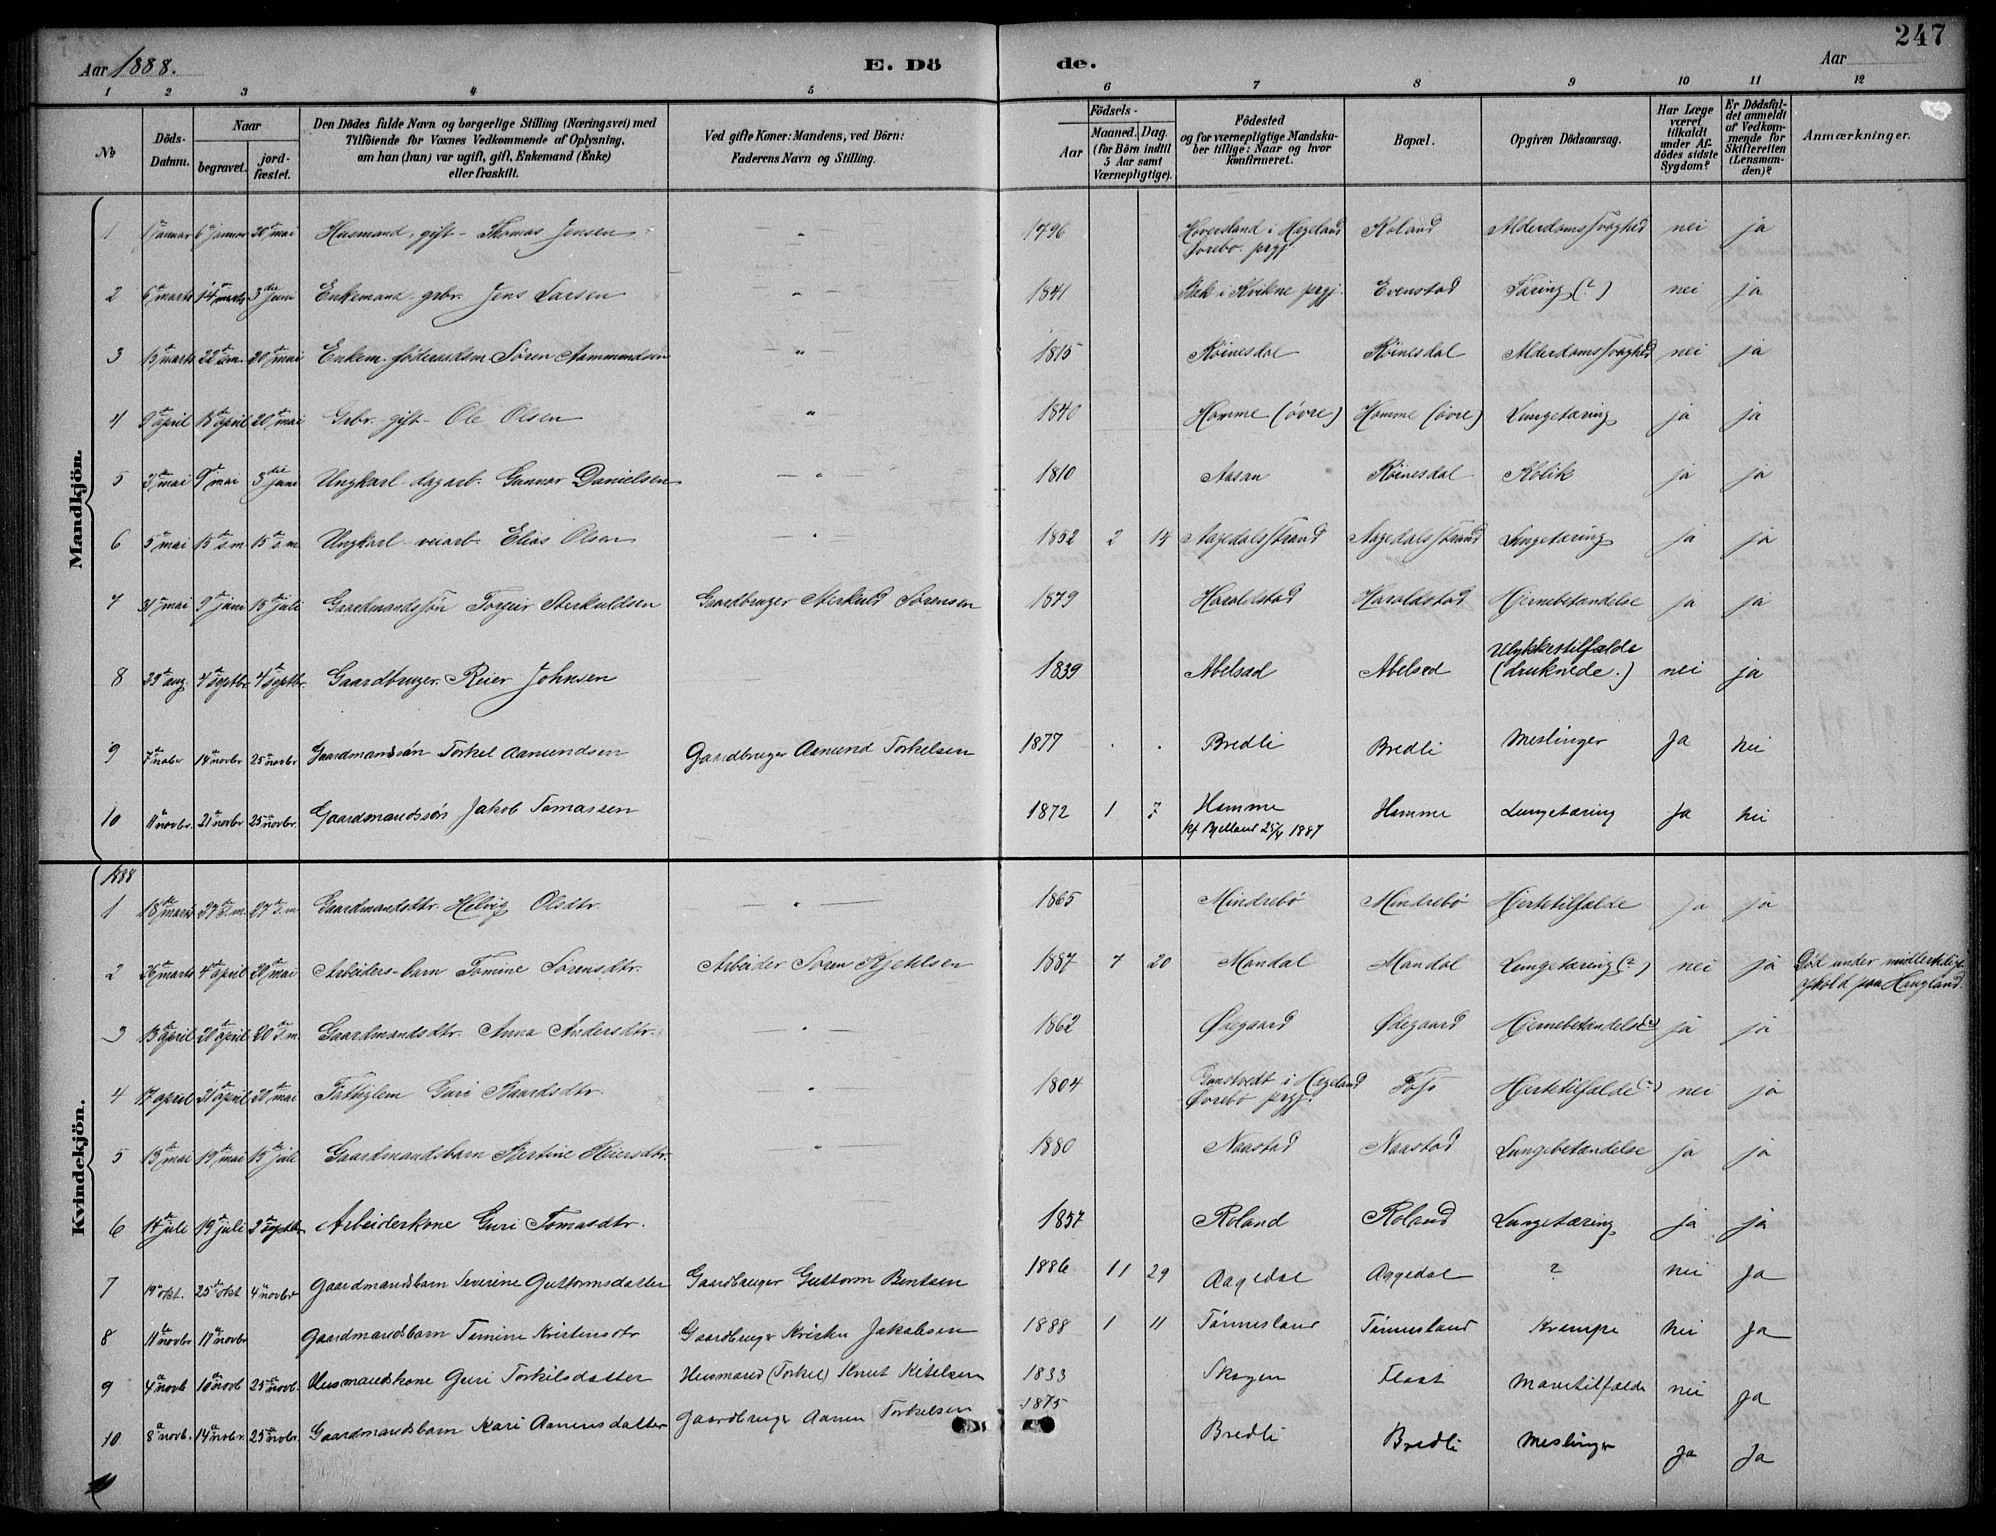 247
Aar 1888.
E. Dö
de.
Aar
1 2 3 4 5 6 7 8 9 10 11 12
No
Döds-Datum.
Naar
begravet.
jord-fæstet.
Den Dödes fulde Navn og borgerlige Stilling (Næringsvei) med
Tilföiende for Voxnes Vedkommende af Oplysning,
om han (hun) var ugift, gift, Enkemand (Enke)
eller fraskilt.
Ved gifte Koner: Mandens, ved Börn:
Faderens Navn og Stilling.
Födsels-
Aar
Maaned. Dag.
(for Börn indtil
5 Aar samt
Værnepligtige).
Födested
og for værnepligtige Mandska-
ber tillige: Naar og hvor
konfirmeret.
Bopæl.
Opgiven Dödsaarsag.
Har Læge
været
tilkaldt
under Af-
dödes sidste
Sygdom?
Er Dödsfal-
det anmeldt
af Vedkom-
mende for
Skifteretten
(Lensman-
den)?
Anmærkninger.
Mandkjön.
1 januar 6 januar 20 mai Husmand, gift - Thomas Jensen " 1796 Hoversland i Hægeland Roland Alderdomssvaghed nei ja
Øvrebø prgj.
2 6 marts 14 marts 3die juni Enkemand grbr. Jens Larsen " 1841 i Kvikne prgj. Evenstad Tæring (?) nei ja
3 13 marts 22 s.m. 20 mai Enkem. föderaadsm. Sören Aammundsen " 1815 Röinesdal Röinesdal Alderdomssvaghed nei ja
4 9 april 18 april 20 mai Grbr. gift - Ole Olsen " 1840 Homme (övre) Homme (övre) Lungetæring ja ja
5 3 mai 9 mai 3die juni Ungkarl - dagarb. Gunnar Danielsen " 1810 Aasan Röinesdal Kolik ja ja
6 5 mai 15 s.m. 15 s.m. Ungkarl - veiarb. Elias Olsen " 1852 2 14 Aagedalsstrand Aagedalsstrand Lungetæring ja ja
7 31 mai 9 juni 15 juli Gaardmandssön Torjeir Sterkuldsen Gaardbruger Sterkuld Sörensen 1879 Haraldstad Haraldstad Hjernebetændelse ja ja
8 29 aug 4 septbr. 4 septbr. Gaardbruger Reier Johnsen 1839 Abelsæd Abelsæd Ulykkestilfælde nei ja
(druknede.)
9 7 nober 14 novbr 25 novbr Gaardmandssön Torkel Aamundsen Gaardbruger Aamund Torkelsen 1877 . . Bredli Bredli Meslinger Ja Nei
10 11 novbr. 21 novbr 25 novbr. Gaardmandssön Jakob Tomassen 1872 1 7 Homme Homme Lungetæring Ja Nei
kf Bjelland 25/4 1887
Kvindekjön.
1888
1 18 marts 27 s.m. 27 s.m. Gaardmandsdtr. Helvig Olsdtr. " 1865 Mindrebö Mindrebö Hjertetilfælde ja ja
2 26 marts 4 april 20 mai Arbeiders-barn Tomine Sörensdtr. Arbeider Sören Kjetelsen 1887 7 20 Mandal Mandal Lungetæring (?) nei ja Död under midlertidigt
ophold paa Haugland.
3 13 april 20 april 20 s.m. Gaardmandsdtr. Anna Andersdtr. " 1862 Ødegaard Ødegaard Hjernebetændelse (?) ja ja
4 17 april 21 april 20 mai Fattiglem Guri Baardsdtr. " 1804 i Hægeland Foss Hjertetilfælde (?) nei ja
Øvrebö prgj.
5 13 mai 19 mai 15 juli Gaardmandsbarn Bertine Reiersdtr. " 1880 Naastad Naastad Lungebetændelse ja ja
6 14 juli 19 juli 2 septbr Arbeiderkone Guri Tomasdtr. 1857 Roland Roland Lungetæring ja ja
7 19 okt. 25 okt 4 novbr Gaardmandsbarn Severine Guttormsdatter Gaardbruger Guttorm Bentsen 1886 11 29 Aagedal Aagedal ? nei Ja
8 11 novbr 11 novbr Gaardmandsbarn Tomine Kristensdtr Gaardbruger Kristen Jakobsen 1888 1 11 Tönnesland Tönnesland Krampe Nei Ja
9 4 novb 10 novb 25 novb. Husmandskone Guri Torkilsdatter Husmand (Torkel) Knut Kitelsen 1833 Skogen Flaat Mavetilfælde nei Ja
10 8 novb. 14 novbr. 25 novbr. Gaardmandsbarn Kari Aanensdatter Gaardbruger Aanen Torkelsen 1875 Bredli Bredli Meslinger Ja Ja